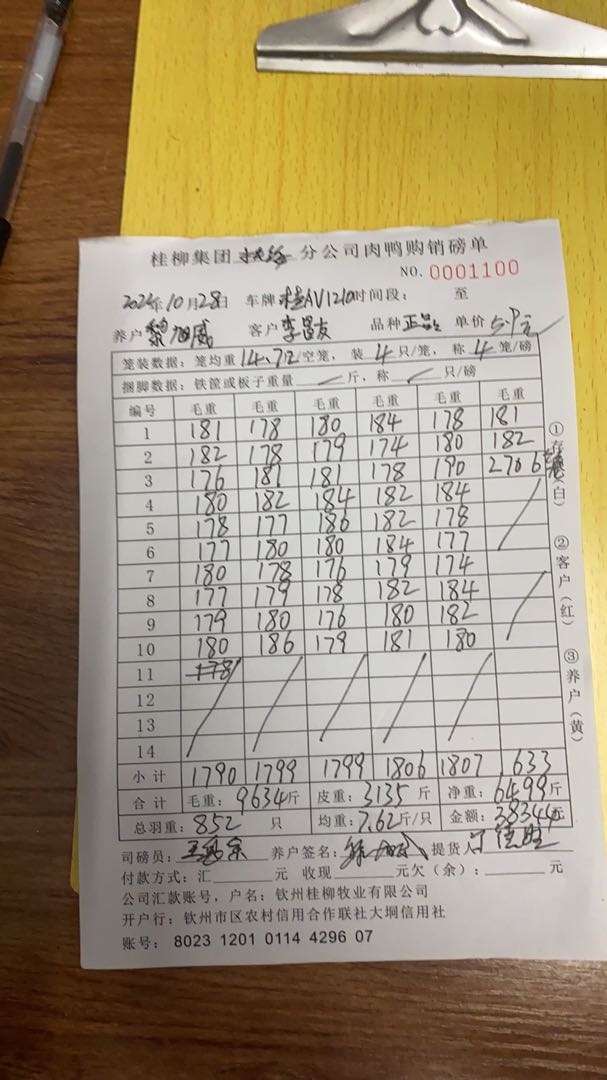 桂柳集团 分公司肉鸭购销磅单
NO. 0001100
2024年10月28日 车牌 桂AV1210 时间段： 至
养户 黎旭威 客户 李昌友 品种 正品 单价 元
笼装数据：笼均重 14.72/空笼，装 4 只/笼，称 4 笼/磅
捆脚数据：铁筐或板子重量 斤，称 只/磅
编号 毛重 毛重 毛重 毛重 毛重 毛重
1 181 178 180 184 178 181
2 182 178 179 174 180 182
3 176 181 181 178 190 270 6
4 180 182 184 182 184
5 178 177 186 182 178
6 177 180 180 184 177
7 180 178 176 179 174
8 177 179 178 182 184
9 179 180 176 180 182
10 180 186 179 181 180
11 178
12
13
14
小计 1790 1799 1799 1806 1807 633
合计 毛重：9634斤 皮重：3135 斤 净重：6499斤
总羽重：852 只 均重：7.62斤/只 金额：38344元
司磅员： 养户签名： 提货人
付款方式：汇 元 收现 元欠（余）： 元
公司汇款账号，户名：钦州桂柳牧业有限公司
开户行：钦州市区农村信用合作联社大垌信用社
账号：8023 1201 0114 4296 07
①存 （白）
②客户（红）
③养户（黄）